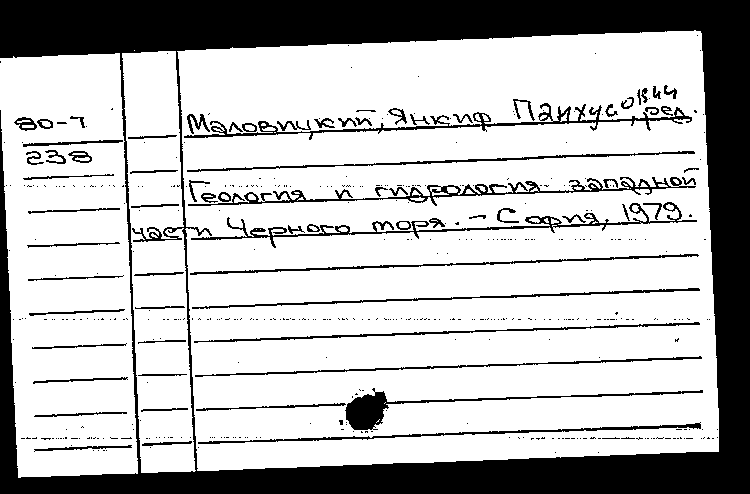 80-7
238
Маловицкий, Янкиф Пинхусович, ред.
Геология и гидрология западной
части Черного моря. - София, 1979.